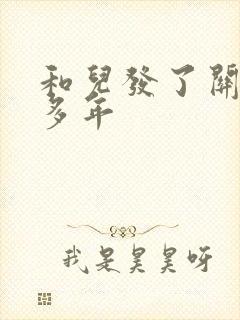 和兒發了關
多年
我是昊昊呀